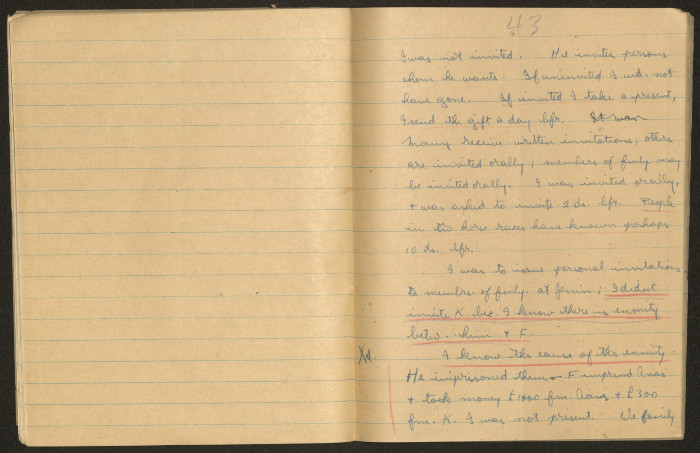 43
I was not invited. He invites persons
whom he wants. If uninvited I wd. not
have gone. If invited I take a present,
I send the gift a day bfr. It was
Many receive written invitations, others
are invited orally; members of family may
be invited orally. I was invited orally,
+ was asked to invite 2 ds. bfr. People
in the horse races have known perhaps
10 ds. bfr.
I was to issue personal invitations
to members of family at Jenin; I didnt
invite K bec. I know there is enmity
betw. him + F.
Xd. I know the cause of this enmity.
He imprisoned them - F imprisnd Anas
+ took money £1000 frm. Anas + £300
frm. K. I was not present. We family